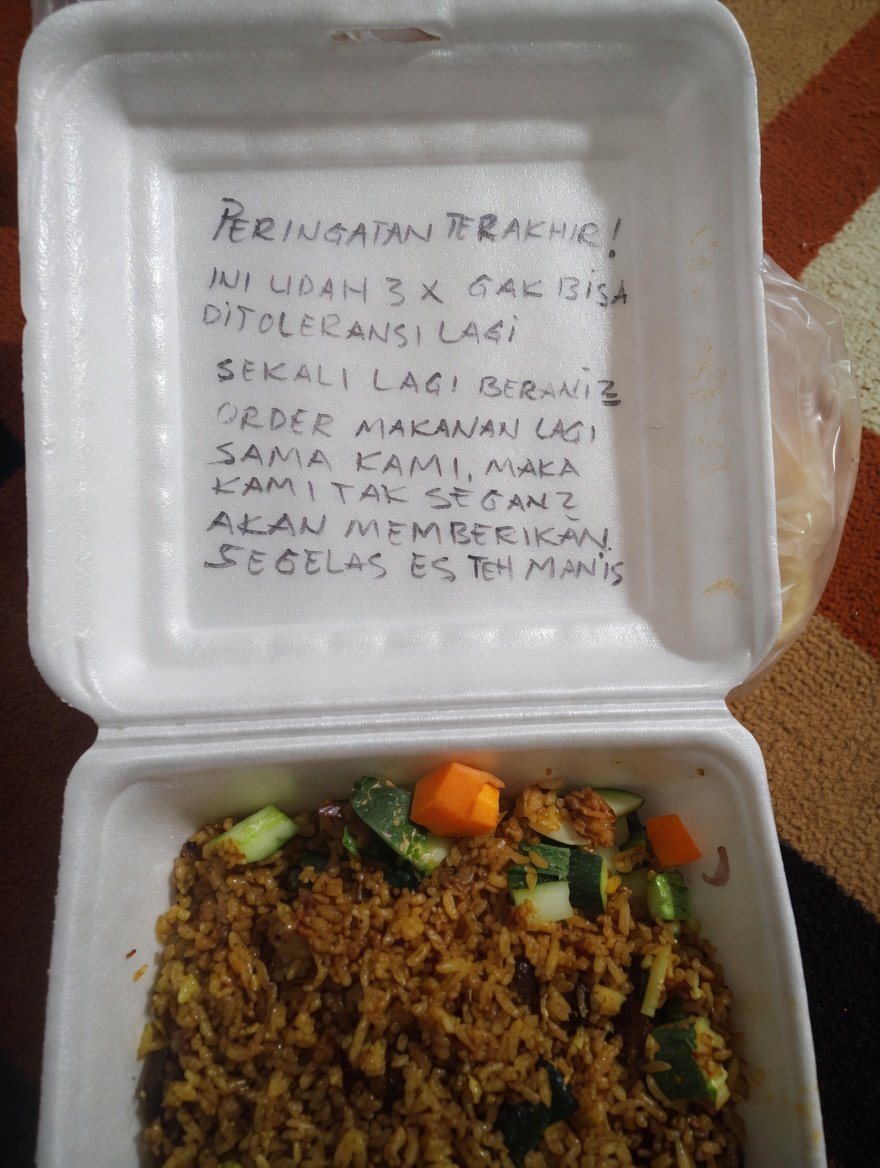 PERINGATAN TERAKHIR!
INI UDAH 3 X GAK BISA
DITOLERANSI LAGI
SEKALI LAGI BERANI2
ORDER MAKANAN LAGI
SAMA KAMI, MAKA
KAMI TAK SEGAN2
AKAN MEMBERIKAN
SEGELAS ES TEH MANIS